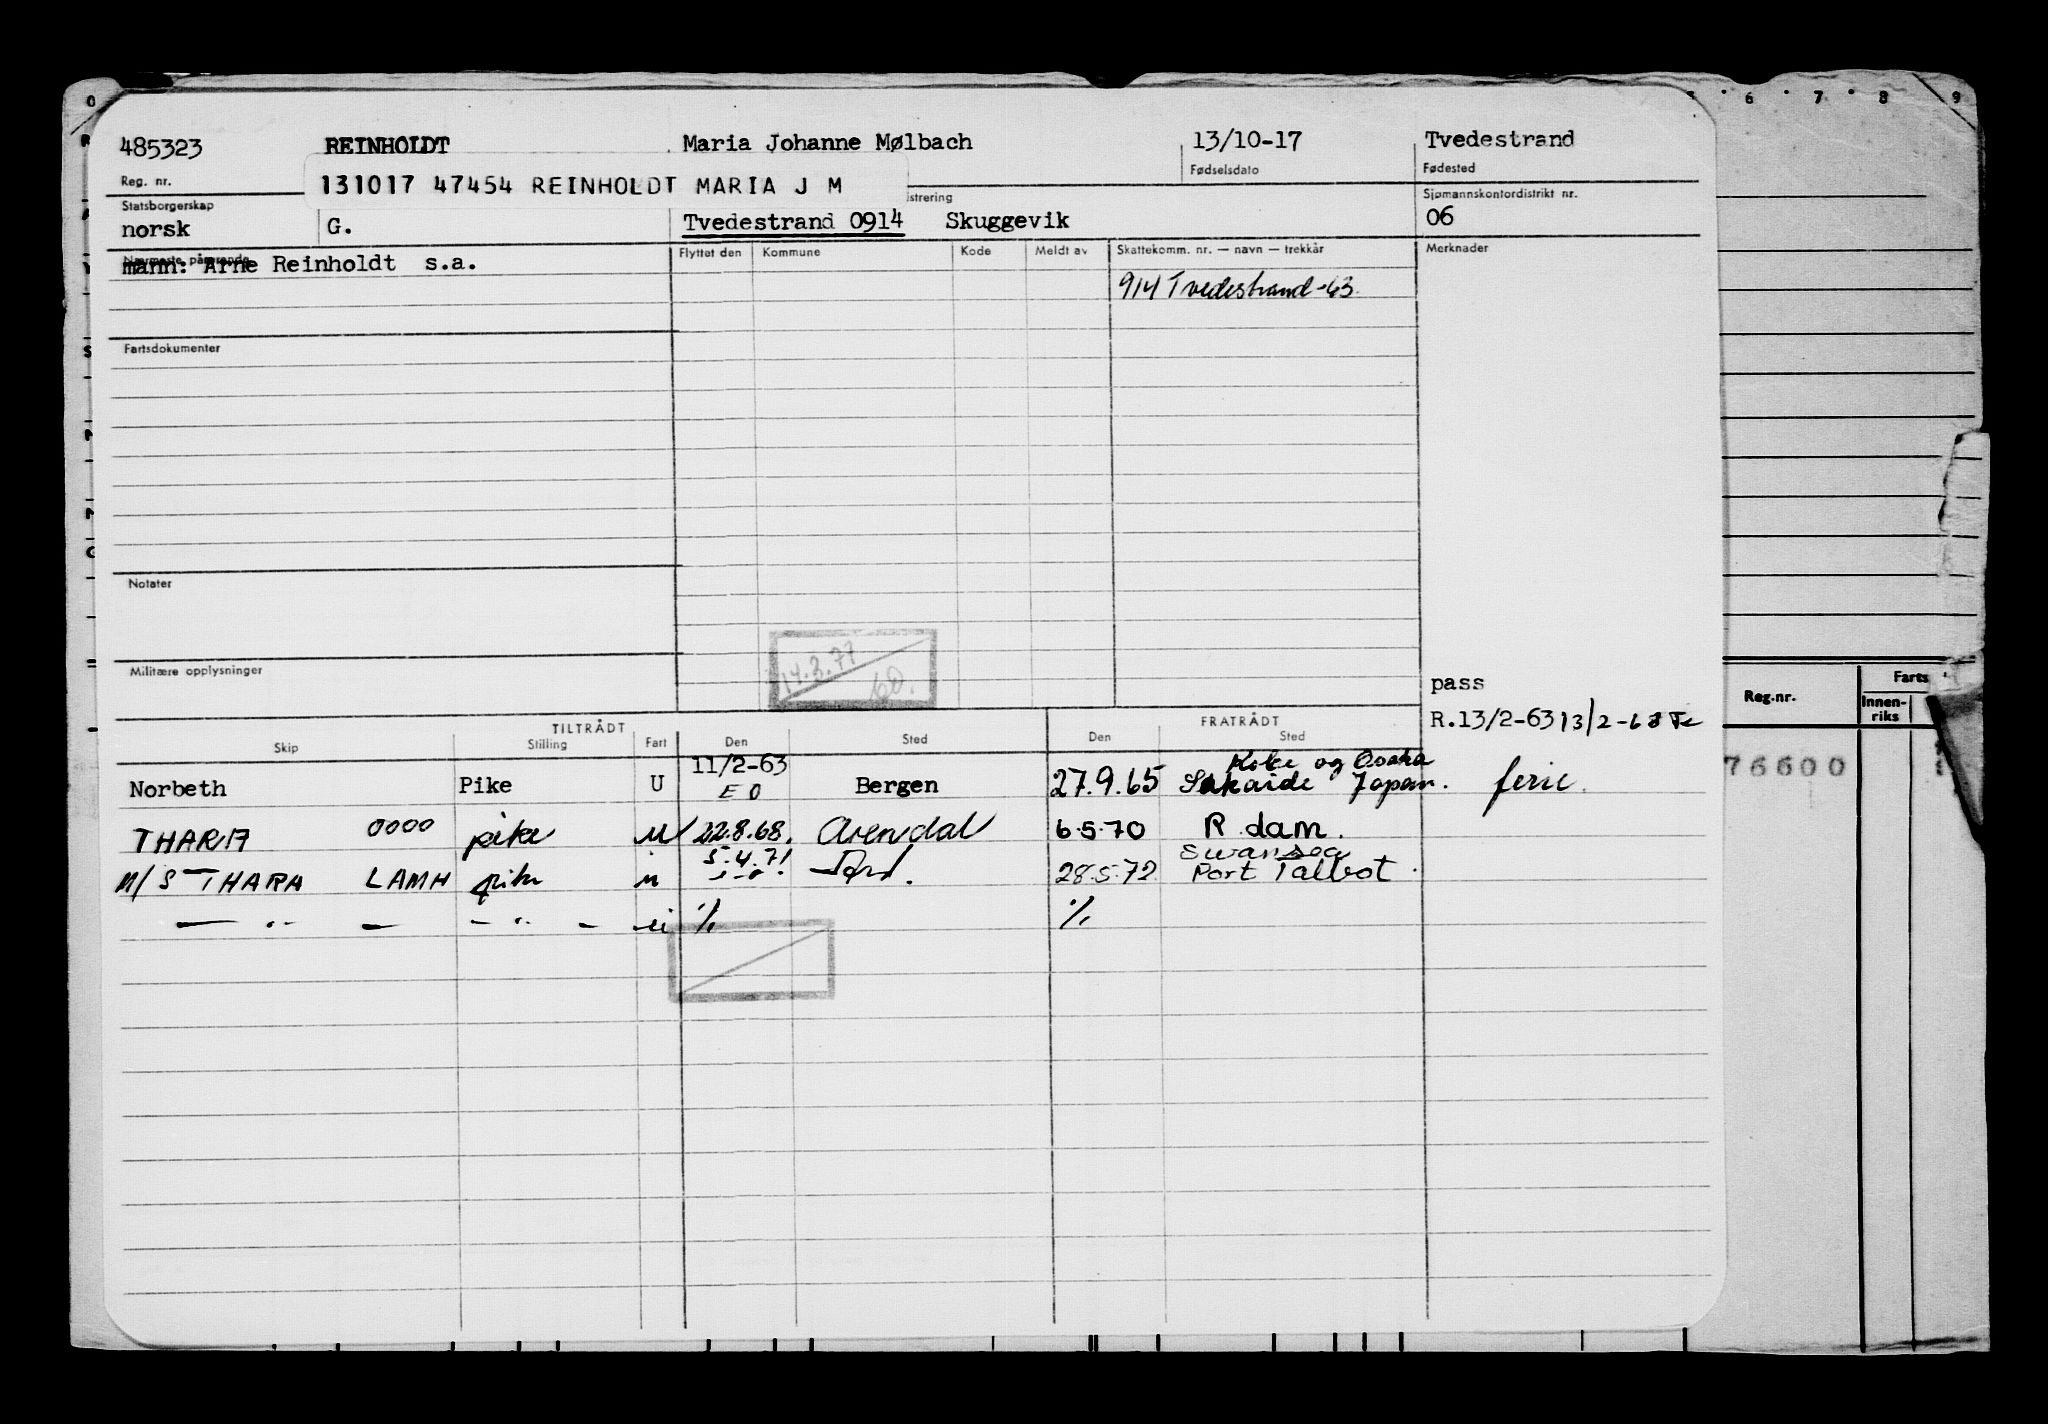 485323 REINHOLDT Maria Johanne Mølbach 13/10-17 Tvedestrand
Reg. nr. Fødselsdato Fødested
131017 47454 REINHOLDT MARIA J M
Statsborgerskap istrering Sjømannskontordistrikt nr.
norsk G. Tvedestrand 0914 Skuggevik 06
Nærmeste pårørende Flyttet den Kommune Kode Meldt av Skattekomm. nr. — navn — trekkår Merknader
mann: Arne Reinholdt s.a.
914 Tvedestrand -63
Fartsdokumenter
Notater
14.3.77
Militære opplysninger
pass
R.13/2-63 13/2-68
TILTRÅDT FRATRÅDT
Skip Stilling Fart Den Sted Den Sted
Norbeth Pike U 11/2-63 E O Bergen 27.9.65 Kobe og Osaka Japan. ferie.
THARA 0000 pike u 22.8.68. Arendal 6.5.70 R dam.
M/S THARA LAMH pike u 5.4.71 28.5.72 Swansea Port Talbot.
— " — — " — u % %
6 7 8 9
Reg.nr. Farts
Innen-
riks
76600